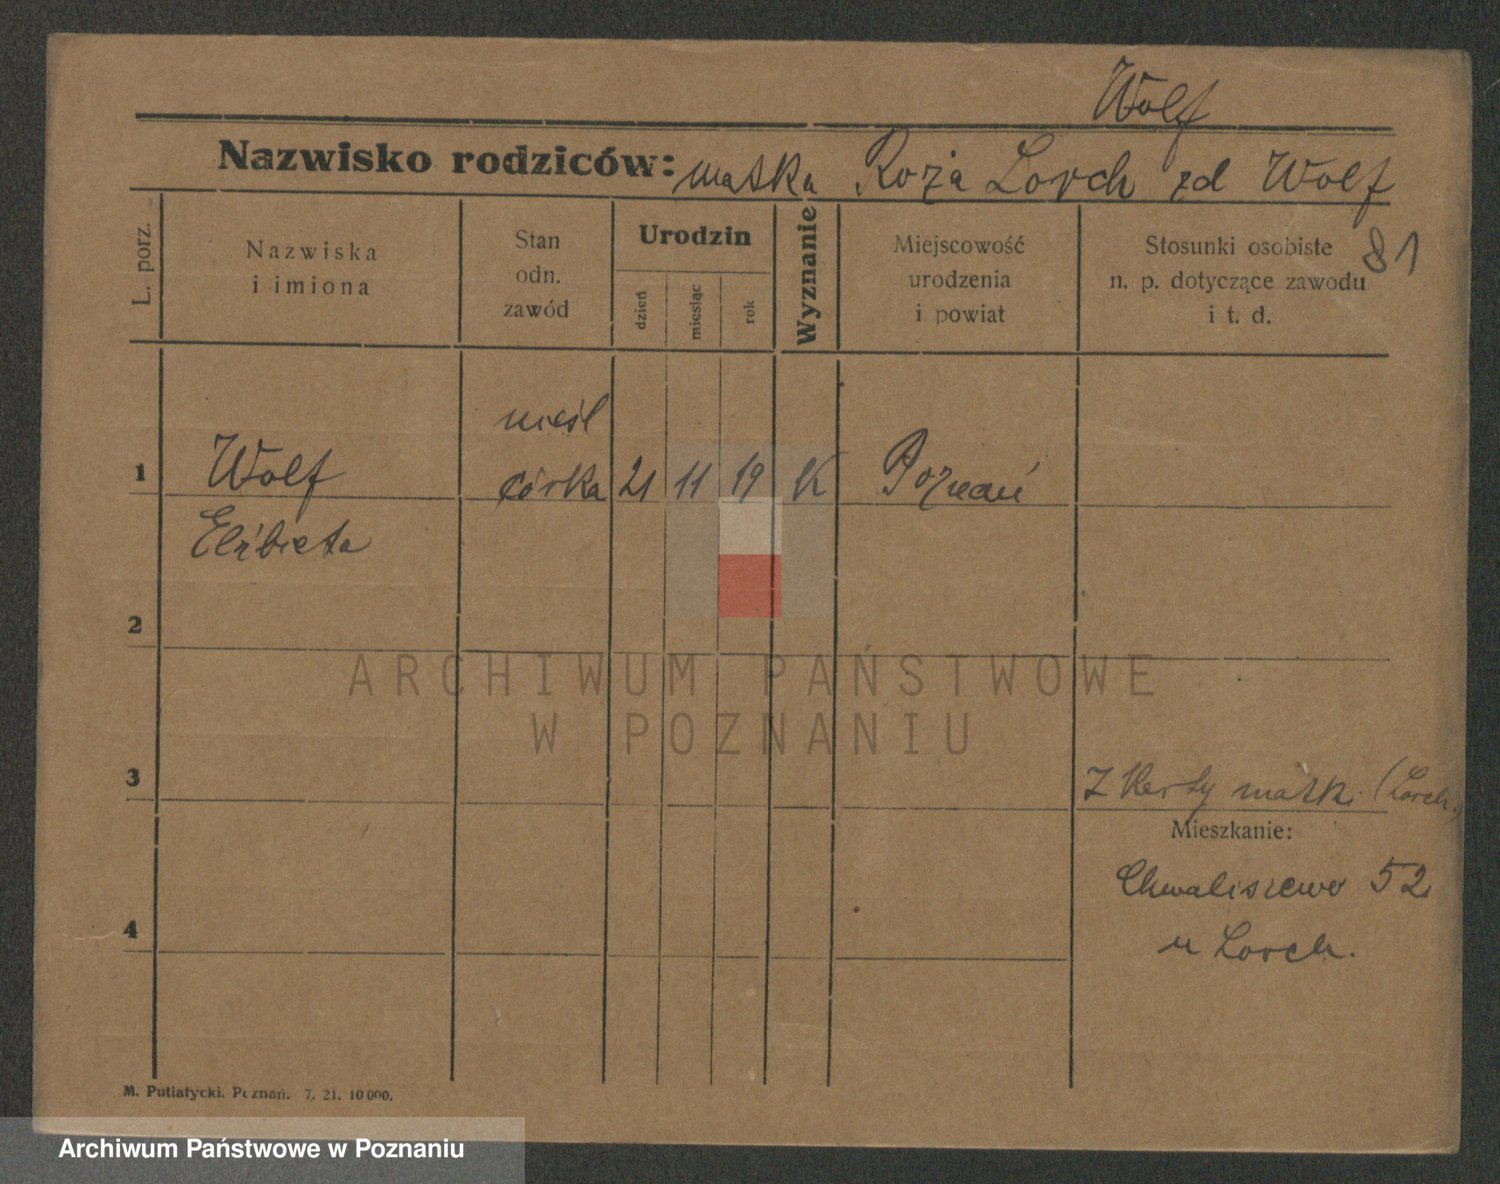 Wolf
Nazwisko rodziców: matka Roża Lorch zd Wolf
81
L. porz.
Nazwiska
i imiona
Stan
odn.
zawód
Urodzin
dzień
miesiąc
rok
Wyznanie
Miejscowość
urodzenia
i powiat
Stosunki osobiste
n. p. dotyczące zawodu
i t. d.
nieśl
1 Wolf córka 21 11 19 K Poznań
Elżbieta
2
ARCHIWUM PAŃSTWOWE
W POZNANIU
3
Z Karty matki (Lorch.
Mieszkanie:
Chwaliszewo 52
u Lorch.
4
M. Putiatycki. Poznań. 7. 21. 10 000.
Archiwum Państwowe w Poznaniu